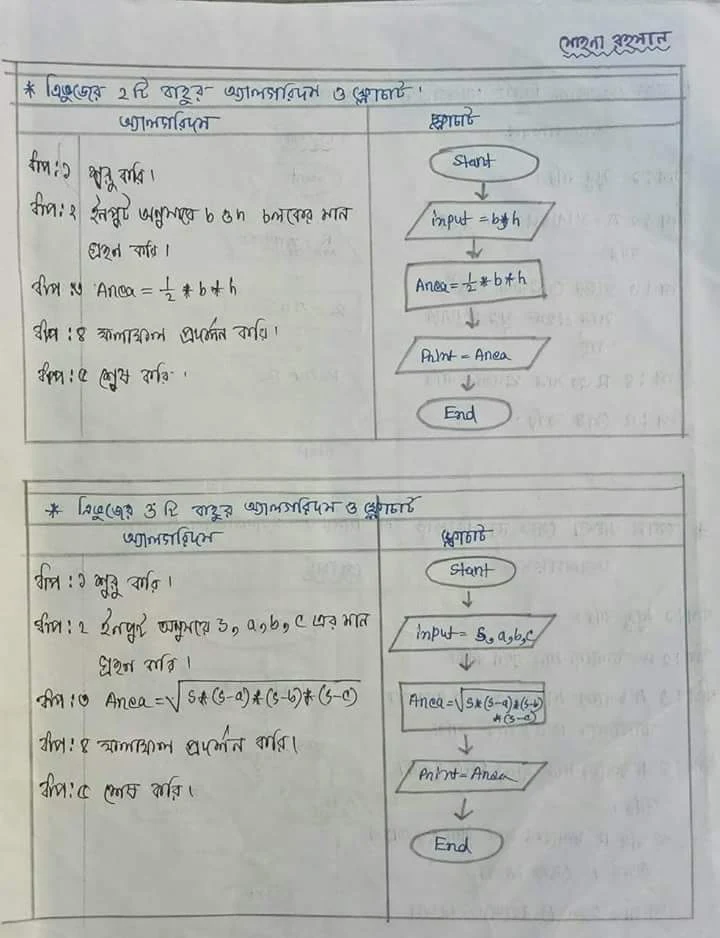 সোহনা রহমান
* ত্রিভুজের ২ টি বাহুর অ্যালগরিদম ও ফ্লোচার্ট।
অ্যালগরিদম
ধাপ: ১ শুরু করি।
ধাপ: ২ ইনপুট অনুসারে b ও h চলকের মান
গ্রহন করি।
ধাপ ৩ Area = 1/2 * b * h
ধাপ : ৪ ফলাফল প্রদর্শন করি।
ধাপ : ৫ শেষ করি।
ফ্লোচার্ট
Start
input = b,h
Area = 1/2 * b * h
Print = Area
End
* ত্রিভুজের ৩ টি বাহুর অ্যালগরিদম ও ফ্লোচার্ট
অ্যালগরিদম
ধাপ : ১ শুরু করি।
ধাপ : ২ ইনপুট অনুসারে s, a, b, c এর মান
গ্রহন করি।
ধাপ : ৩ Area = √s*(s-a)*(s-b)*(s-c)
ধাপ : ৪ ফলাফল প্রদর্শন করি।
ধাপ : ৫ শেষ করি।
ফ্লোচার্ট
Start
input = s, a, b, c
Area = √s*(s-a)*(s-b)
*(s-c)
Print = Area
End